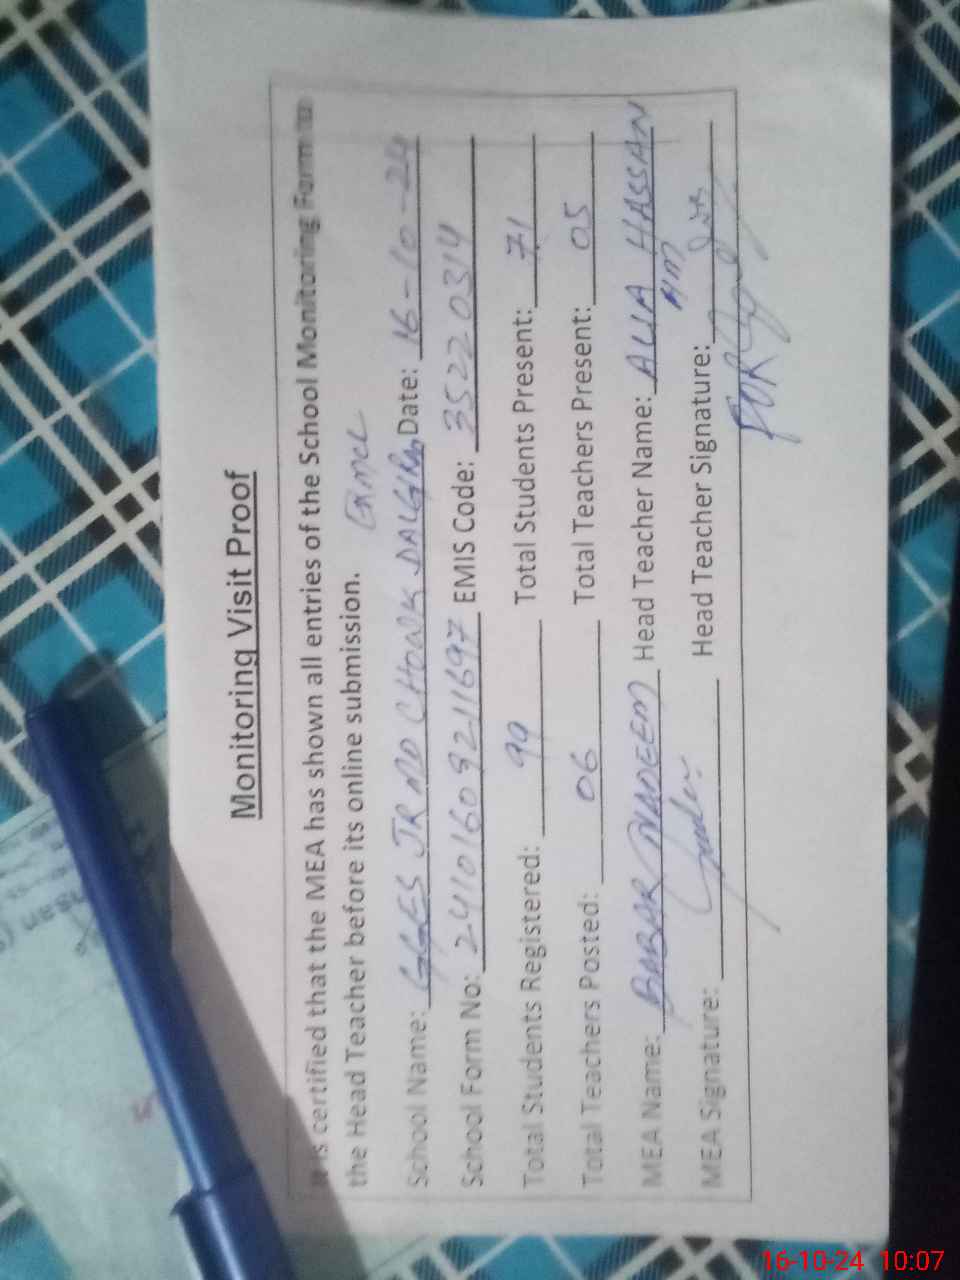 Monitoring Visit Proof
It is certified that the MEA has shown all entries of the School Monitoring Form to
the Head Teacher before its online submission.
School Name: GGES JR MD CHOWK Date: 16-10-24
School Form No: EMIS Code: 35220314
Total Students Registered: 99 Total Students Present: 71
Total Teachers Posted: 06 Total Teachers Present: 05
MEA Name: BABAR NADEEM Head Teacher Name: ALIA HASSAN
MEA Signature: Head Teacher Signature:
FOR
16-10-24 10:07